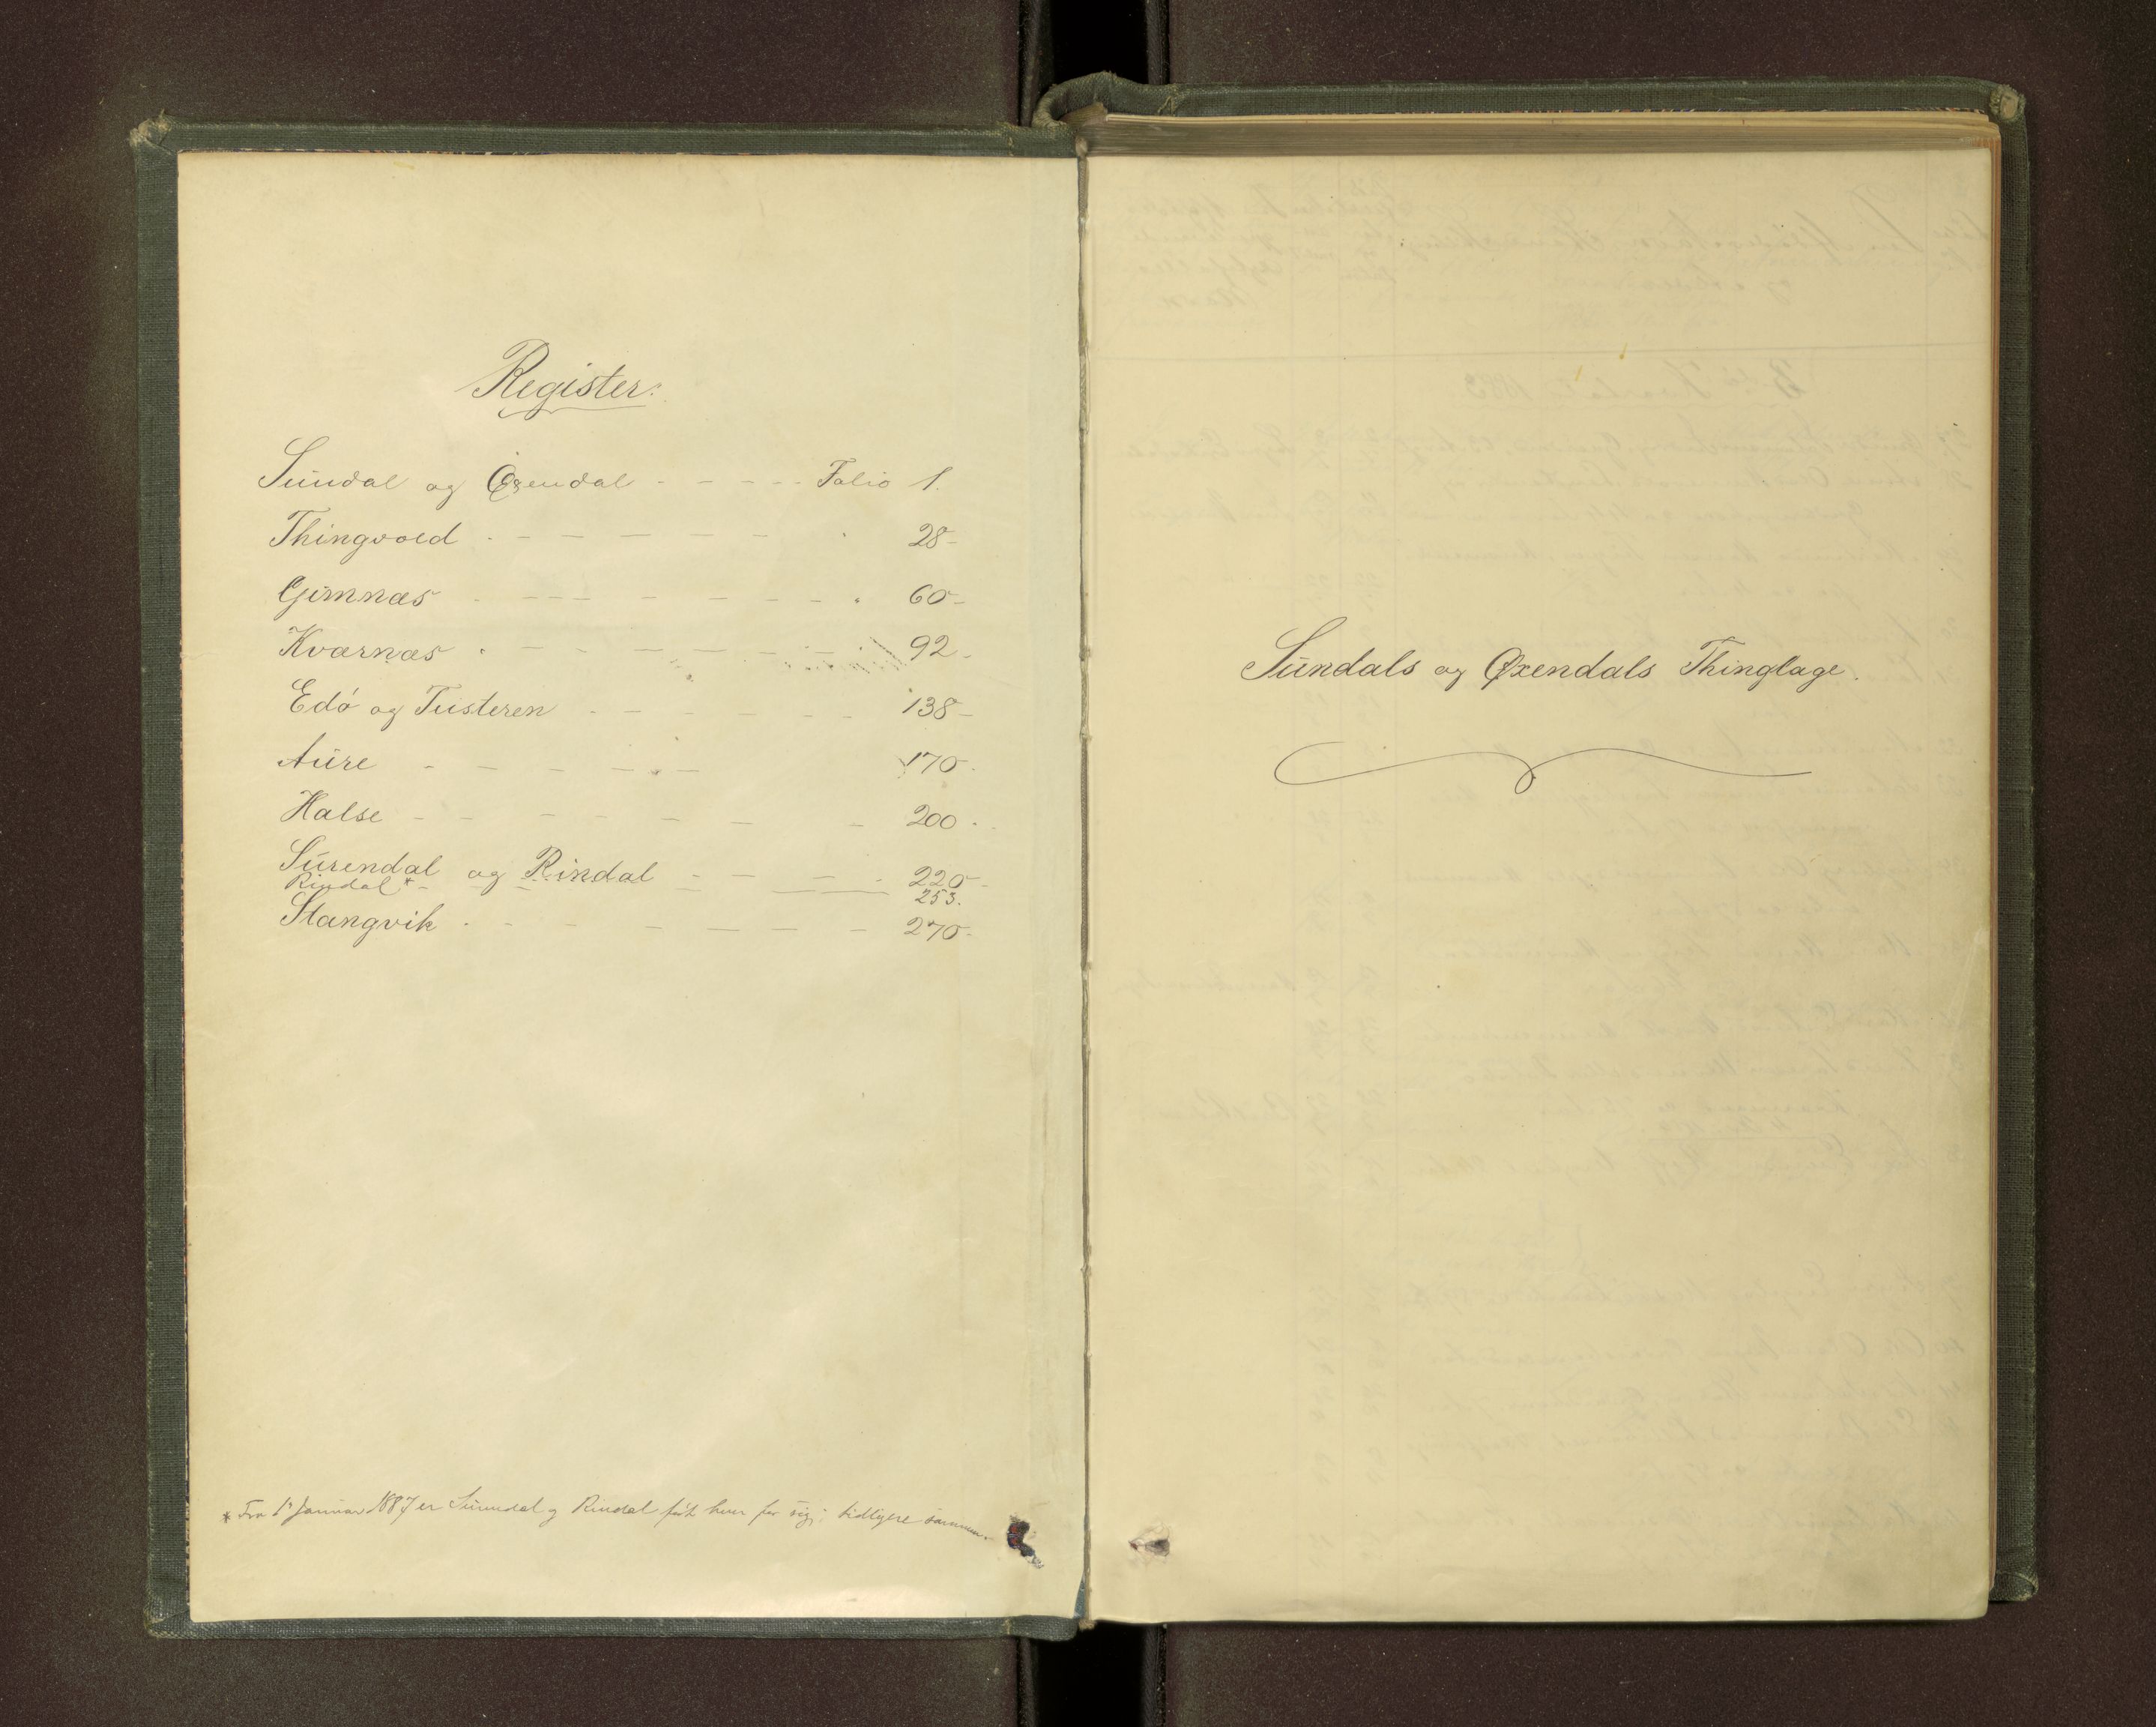 Register:
Sundal og Øxendal - - - - - Folio 1.
Thingvold - - - - - - - 28-
Gimnæs - - - - - - - - 60-
Kværnæs - - - - - - - 92-
Edö og Tusteren - - - - - - 138-
Aure - - - - - - 170-
Halse - - - - - - - - 200-
Surendal og Rindal - - - - 220-
Rindal* - - - - 253.
Stangvik - - - - - - - 270-
* Fra 1' Januar 1887 er Surendal og Rindal ført hver for sig; tidligere sammen.
Sundals og Øxendals Thinglage.